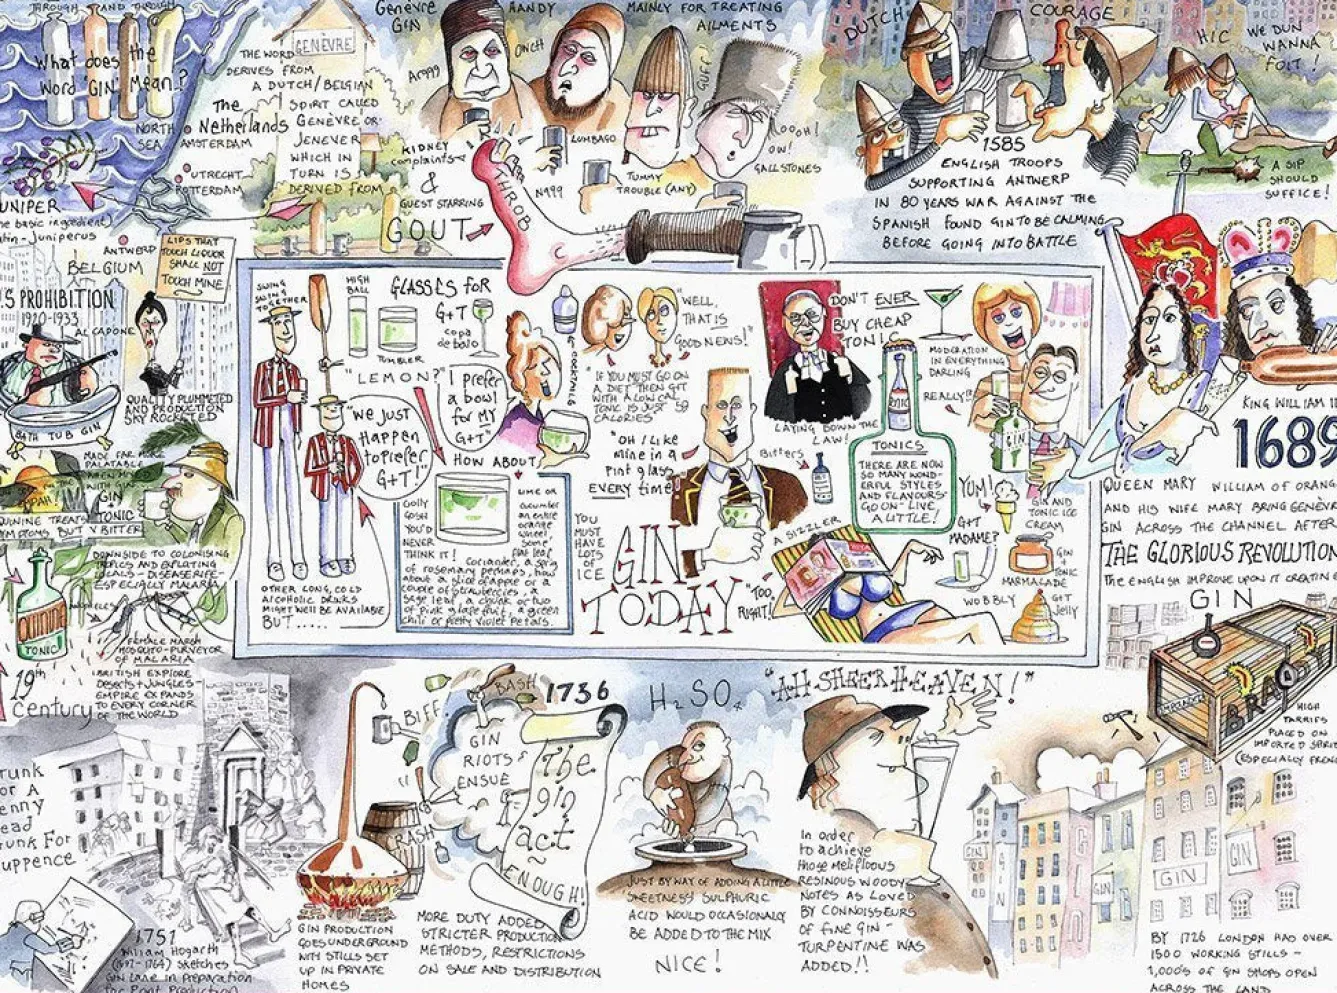 THROUGH AND THROUGH
What does the
Word 'GIN' Mean?
NORTH
SEA
THE WORD
DERIVES FROM
A DUTCH/BELGIAN
SPIRIT CALLED
GENÈVRE OR
JENEVER
WHICH IN
TURN IS
DERIVED FROM
GENÈVRE
The
Netherlands
AMSTERDAM
UTRECHT
ROTTERDAM
UNIPER
basic ingredient)
Juniperus
ANTWERP
BELGIUM
LIPS THAT
TOUCH LIQUOR
SHALL NOT
TOUCH MINE
Genèvre
GIN
HANDY
MAINLY FOR TREATING
AILMENTS
OUCH
LUMBAGO
KIDNEY
complaints
&
GUEST STARRING
GOUT
THROB
TUMMY
TROUBLE (ANY)
OW!
GALL STONES
DUTCH
COURAGE
1585
ENGLISH TROOPS
SUPPORTING ANTWERP
IN 80 YEARS WAR AGAINST THE
SPANISH FOUND GIN TO BE CALMING
BEFORE GOING INTO BATTLE
HIC
WE DUN
WANNA
FOIT!
A SIP
SHOULD
SUFFICE!
S PROHIBITION
1920-1933
AL CAPONE
BATH TUB GIN
QUALITY PLUMMETED
AND PRODUCTION
SKY ROCKETED
SWING
SWING
TOGETHER
HIGH
BALL
GLASSES FOR
G+T
TUMBLER
copa
de balo
"LEMON?"
"WE JUST
Happen
to prefer
G+T!"
I prefer
a bowl
for MY
G+T"
HOW ABOUT
OTHER LONG, COLD
ALCOHOLIC DRINKS
MIGHT WELL BE AVAILABLE
BUT.....
GOLLY
GOSH
YOU'D
NEVER
THINK IT!
LIME OR
cucumber
an entire
orange
wheel
some
Coriander, a sprig
of rosemary perhaps, how
about a slice of apple or a
couple of strawberries, a
sage leaf, a chunk or two
of pink grapefruit, a green
chili or pretty violet petals.
COCKTAILS
"WELL,
THAT IS
GOOD NEWS!"
"IF YOU MUST GO ON
A DIET THEN GIT
WITH A LOW CAL
TONIC IS JUST 59
CALORIES"
"OH I LIKE
MINE in a
Pint glass
EVERY time"
YOU
MUST
HAVE
LOTS
OF
ICE
GIN
TODAY
"TOO
RIGHT!"
Bitters
DON'T EVER
BUY CHEAP
TONIC!
LAYING DOWN THE
LAW!
TONIC
TONICS
THERE ARE NOW
SO MANY WOND-
ERFUL STYLES
AND FLAVOURS-
GO ON - LIVE
A LITTLE!
A SIZZLER
MODERATION
IN EVERYTHING
DARLING
REALLY?
GIN
YUM!
GIN AND
TONIC ICE
CREAM
G+T
MADAME?
GIN
+
TONIC
MARMALADE
WOBBLY
G+T
Jelly
KING WILLIAM III
1689
QUEEN MARY
WILLIAM OF ORANG
AND HIS WIFE MARY BRING GENÈV
GIN ACROSS THE CHANNEL AFTER
THE GLORIOUS REVOLUTION
THE ENGLISH IMPROVE UPON IT CREATING
GIN
HIGH
TARRIFS
PLACED ON
IMPORTED SPIRI
(ESPECIALLY FREN
MADE FAR MORE
PALATABLE
WITH GIN
GIN
+
TONIC
V BITTER
DOWNSIDE TO COLONISING
TROPICS AND EXPLOITING
LOCALS - DISEASE RIFE-
ESPECIALLY MALARIA
TONIC
FEMALE MARSH
MOSQUITO - PURVEYOR
OF MALARIA
19th
century
BRITISH EXPLORE
DESERTS + JUNGLES-
EMPIRE EXPANDS
TO EVERY CORNER
OF THE WORLD
runk
or A
enny
ead
runk For
uppence
1751
William Hogarth
(1697-1764) sketches
Gin Lane in preparation
for Print Production
BIFF
BASH
CRASH
GIN
RIOTS
ENSUE
GIN PRODUCTION
GOES UNDERGROUND
WITH STILLS SET
UP IN PRIVATE
HOMES
1736
The
gin
act
~
ENOUGH!
MORE DUTY ADDED
STRICTER PRODUCTION
METHODS, RESTRICTIONS
ON SALE AND DISTRIBUTION
H₂SO₄
JUST BY WAY OF ADDING A LITTLE
'SWEETNESS' SULPHURIC
ACID WOULD OCCASIONALLY
BE ADDED TO THE MIX
NICE!
"AH SHEER HEAVEN!"
In order
to achieve
those mellifluous
RESINOUS WOODY
NOTES AS LOVED
BY CONNOISSEURS
OF FINE GIN -
TURPENTINE WAS
ADDED!!
GIN
GIN
GIN
GIN
BY 1726 LONDON HAS OVER
1500 WORKING STILLS -
1,000'S OF GIN SHOPS OPEN
ACROSS THE LAND